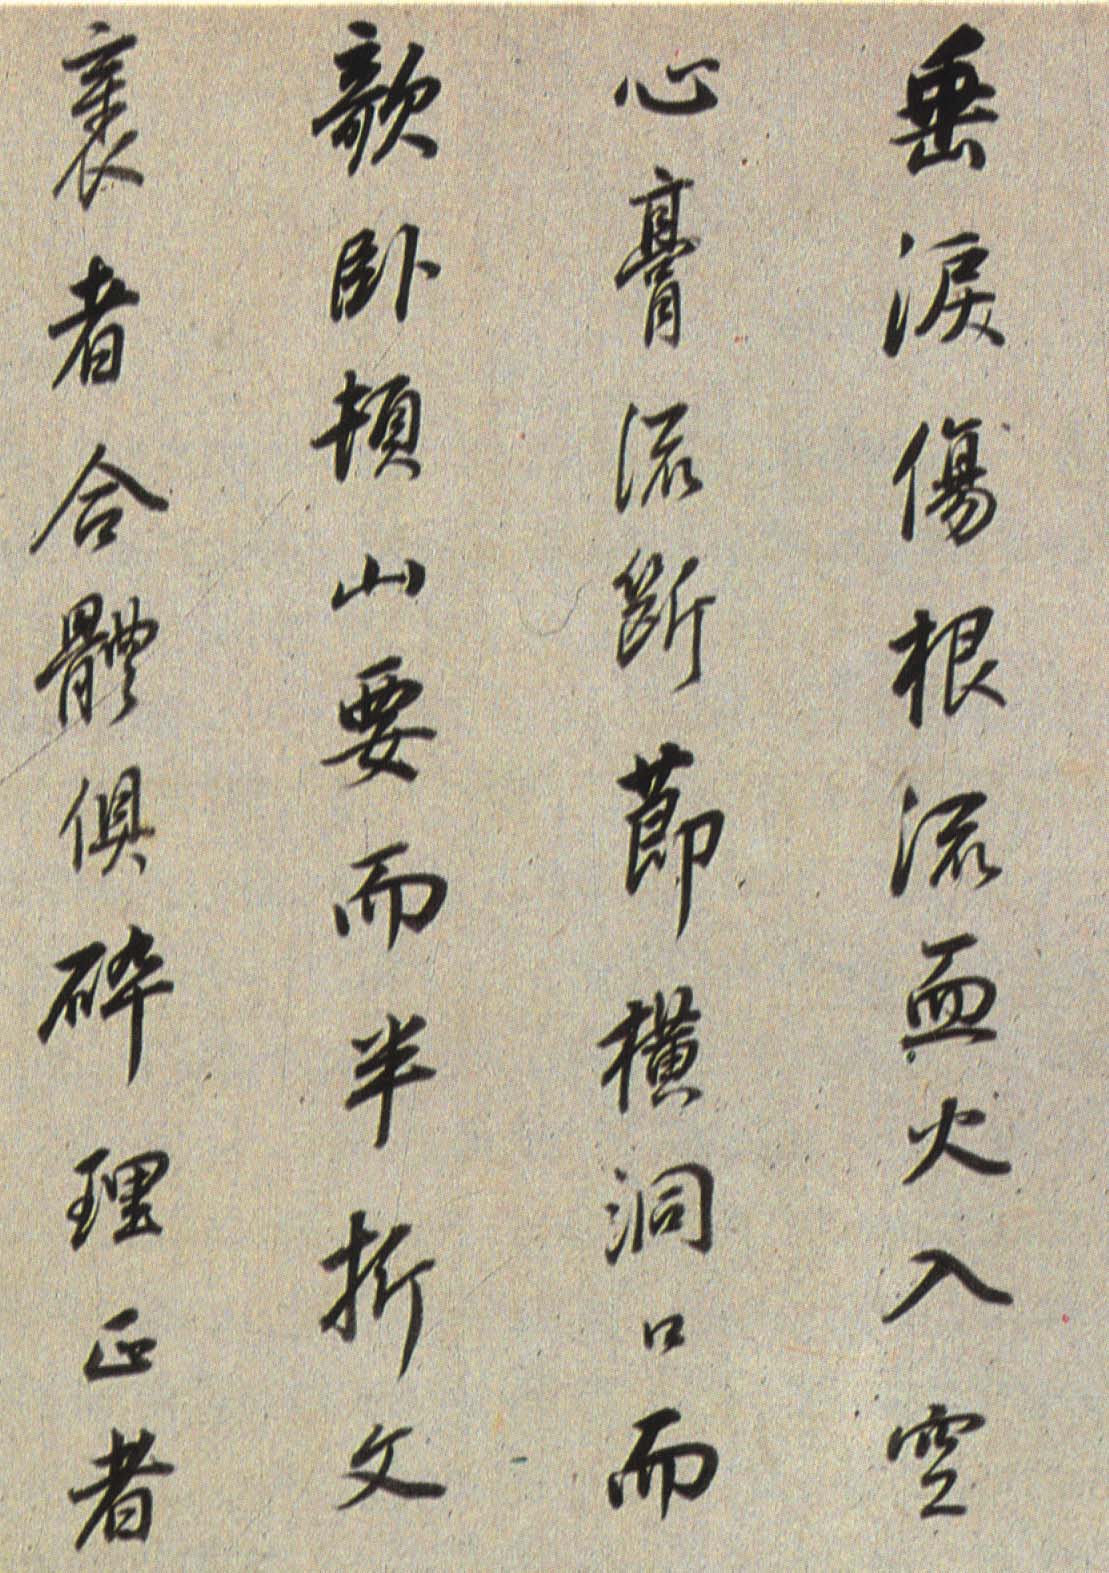 垂淚傷根流血火入空
心膏流斷節橫洞口而
欹卧頓山要而半折文
裹者合體俱碎理正者